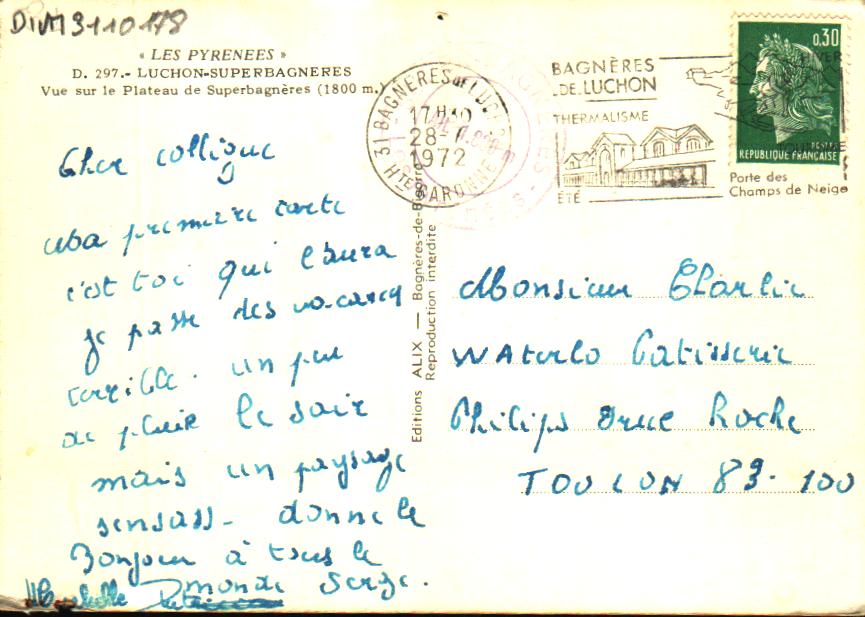 DIM 311078
« LES PYRENEES »
D. 297.- LUCHON-SUPERBAGNERES
Vue sur le Plateau de Superbagnères (1800 m.)
Cher collègue
Ma première carte
c'est toi qui l'aura
je passe des vacances
terrible. un peu
de pluie le soir
mais un paysage
sensass- donne le
Bonjour à tous le
monde Serge.
Editions ALIX — Bagnères-de-Bigorre
Reproduction interdite
31 BAGNERES DE LUCHON
17H30
28-
1972
HTE GARONNE
BAGNÈRES
DE LUCHON
THERMALISME
ÉTÉ
HIVER
TOURISME
Porte des
Champs de Neige
0,30
POSTES
REPUBLIQUE FRANÇAISE
Monsieur Charlie
WATERLO Patisserie
Philips Rue Roche
TOULON 83-100